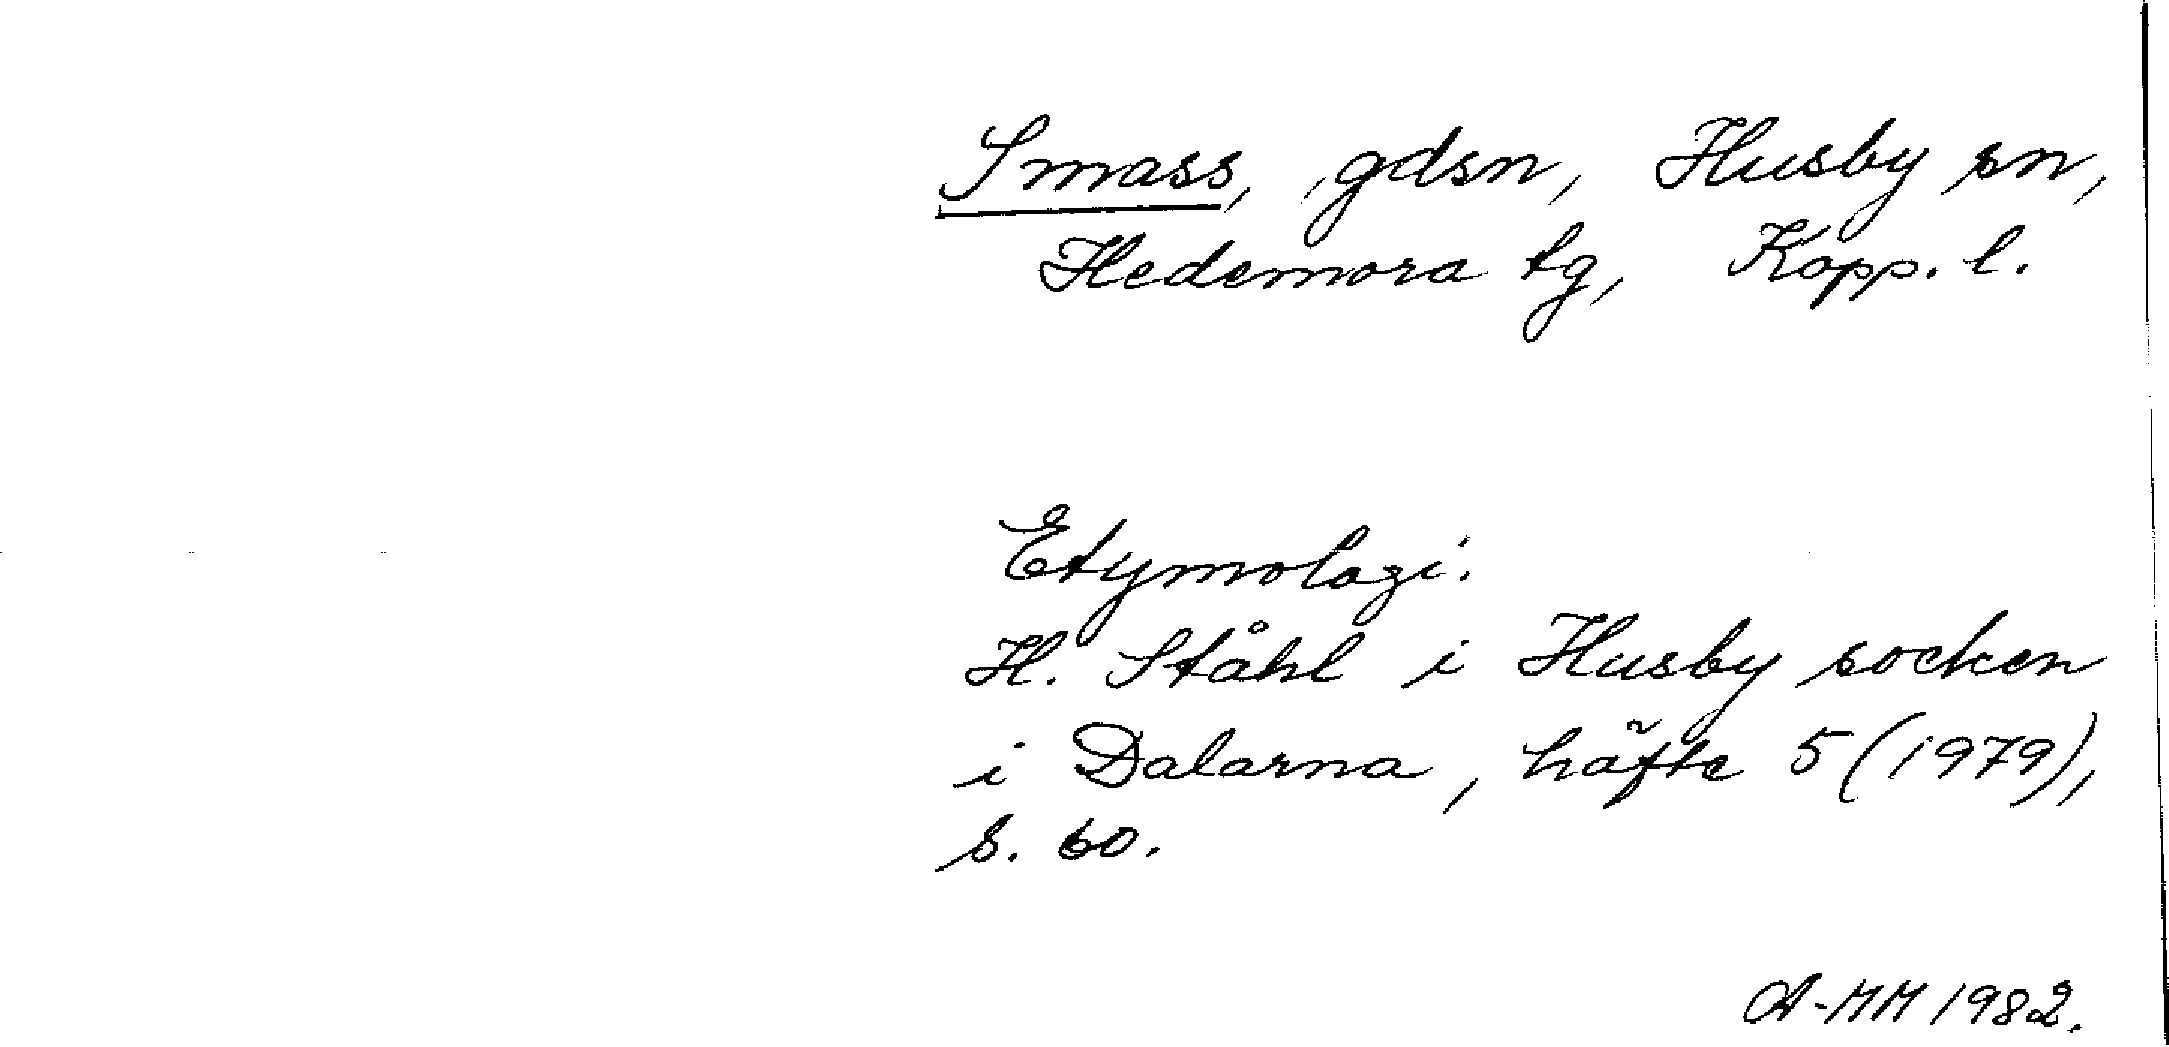 Smass, gdsn, Husby sn,
Hedemora tg, Kopp. l.
Etymologi.
H. Ståhl i Husby socken
i Dalarna, häfte 5 (1979),
s. 60.
A-MM 1982.